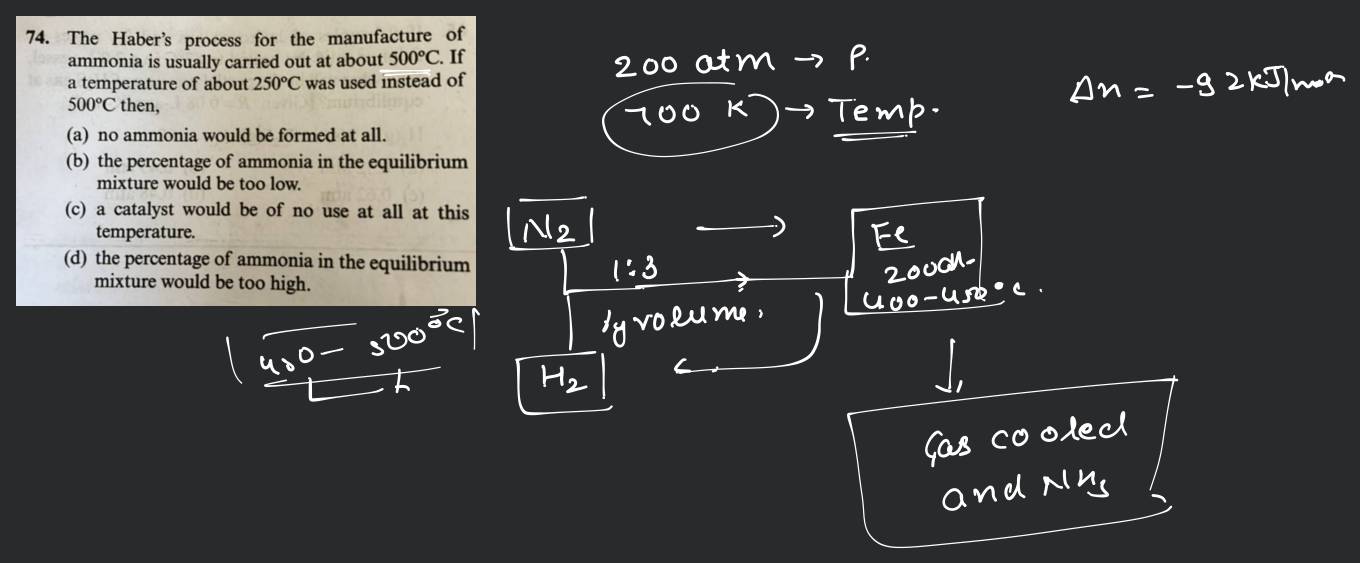 74. The Haber's process for the manufacture of
ammonia is usually carried out at about 500°C. If
a temperature of about 250°C was used instead of
500°C then,
(a) no ammonia would be formed at all.
(b) the percentage of ammonia in the equilibrium
mixture would be too low.
(c) a catalyst would be of no use at all at this
temperature.
(d) the percentage of ammonia in the equilibrium
mixture would be too high.
200 atm → P.
700 K → Temp.
Δn = -92kJ/mol
N2
1:3
by volume,
H2
Fe
200atm
400-450°C.
400-500°C
Gas cooled
and NH3